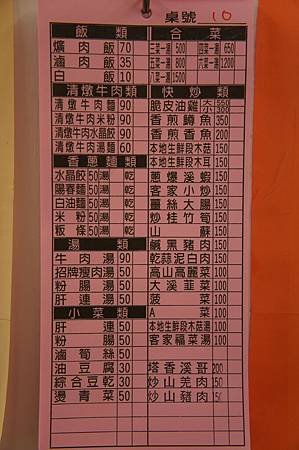 桌號 10
飯 類
爌肉飯 70
滷肉飯 35
白 飯 10
清燉牛肉類
清燉牛肉麵 90
清燉牛肉米粉 90
清燉牛肉水晶餃 90
清燉牛肉湯麵 60
香蔥麵類
水晶餃 50 湯 乾
陽春麵 50 湯 乾
白油麵 50 湯 乾
米 粉 50 湯 乾
粄 條 50 湯 乾
湯 類
牛肉湯 90
招牌瘦肉湯 50
粉腸湯 50
肝連湯 50
小菜類
肝 連 50
粉 腸 50
滷筍絲 50
油豆腐 30
綜合豆乾 30
燙青菜 50
合 菜
三菜一湯 500 四菜一湯 650
五菜一湯 800 六菜一湯 1200
八菜一湯 1500
快炒類
脆皮油雞
香煎鱒魚 350
香煎香魚 200
本地生鮮段木菇 100
本地生鮮段木耳 100
蔥爆溪蝦 100
客家小炒 100
薑絲大腸 100
炒桂竹筍 100
山 蘇 100
鹹黑豬肉 100
乾蒜泥白肉 100
高山高麗菜 100
大溪韮菜 100
菠 菜 100
A 菜 100
本地生鮮段木菇湯 100
客家福菜湯 100
塔香溪哥 200
炒山羌肉
炒山豬肉